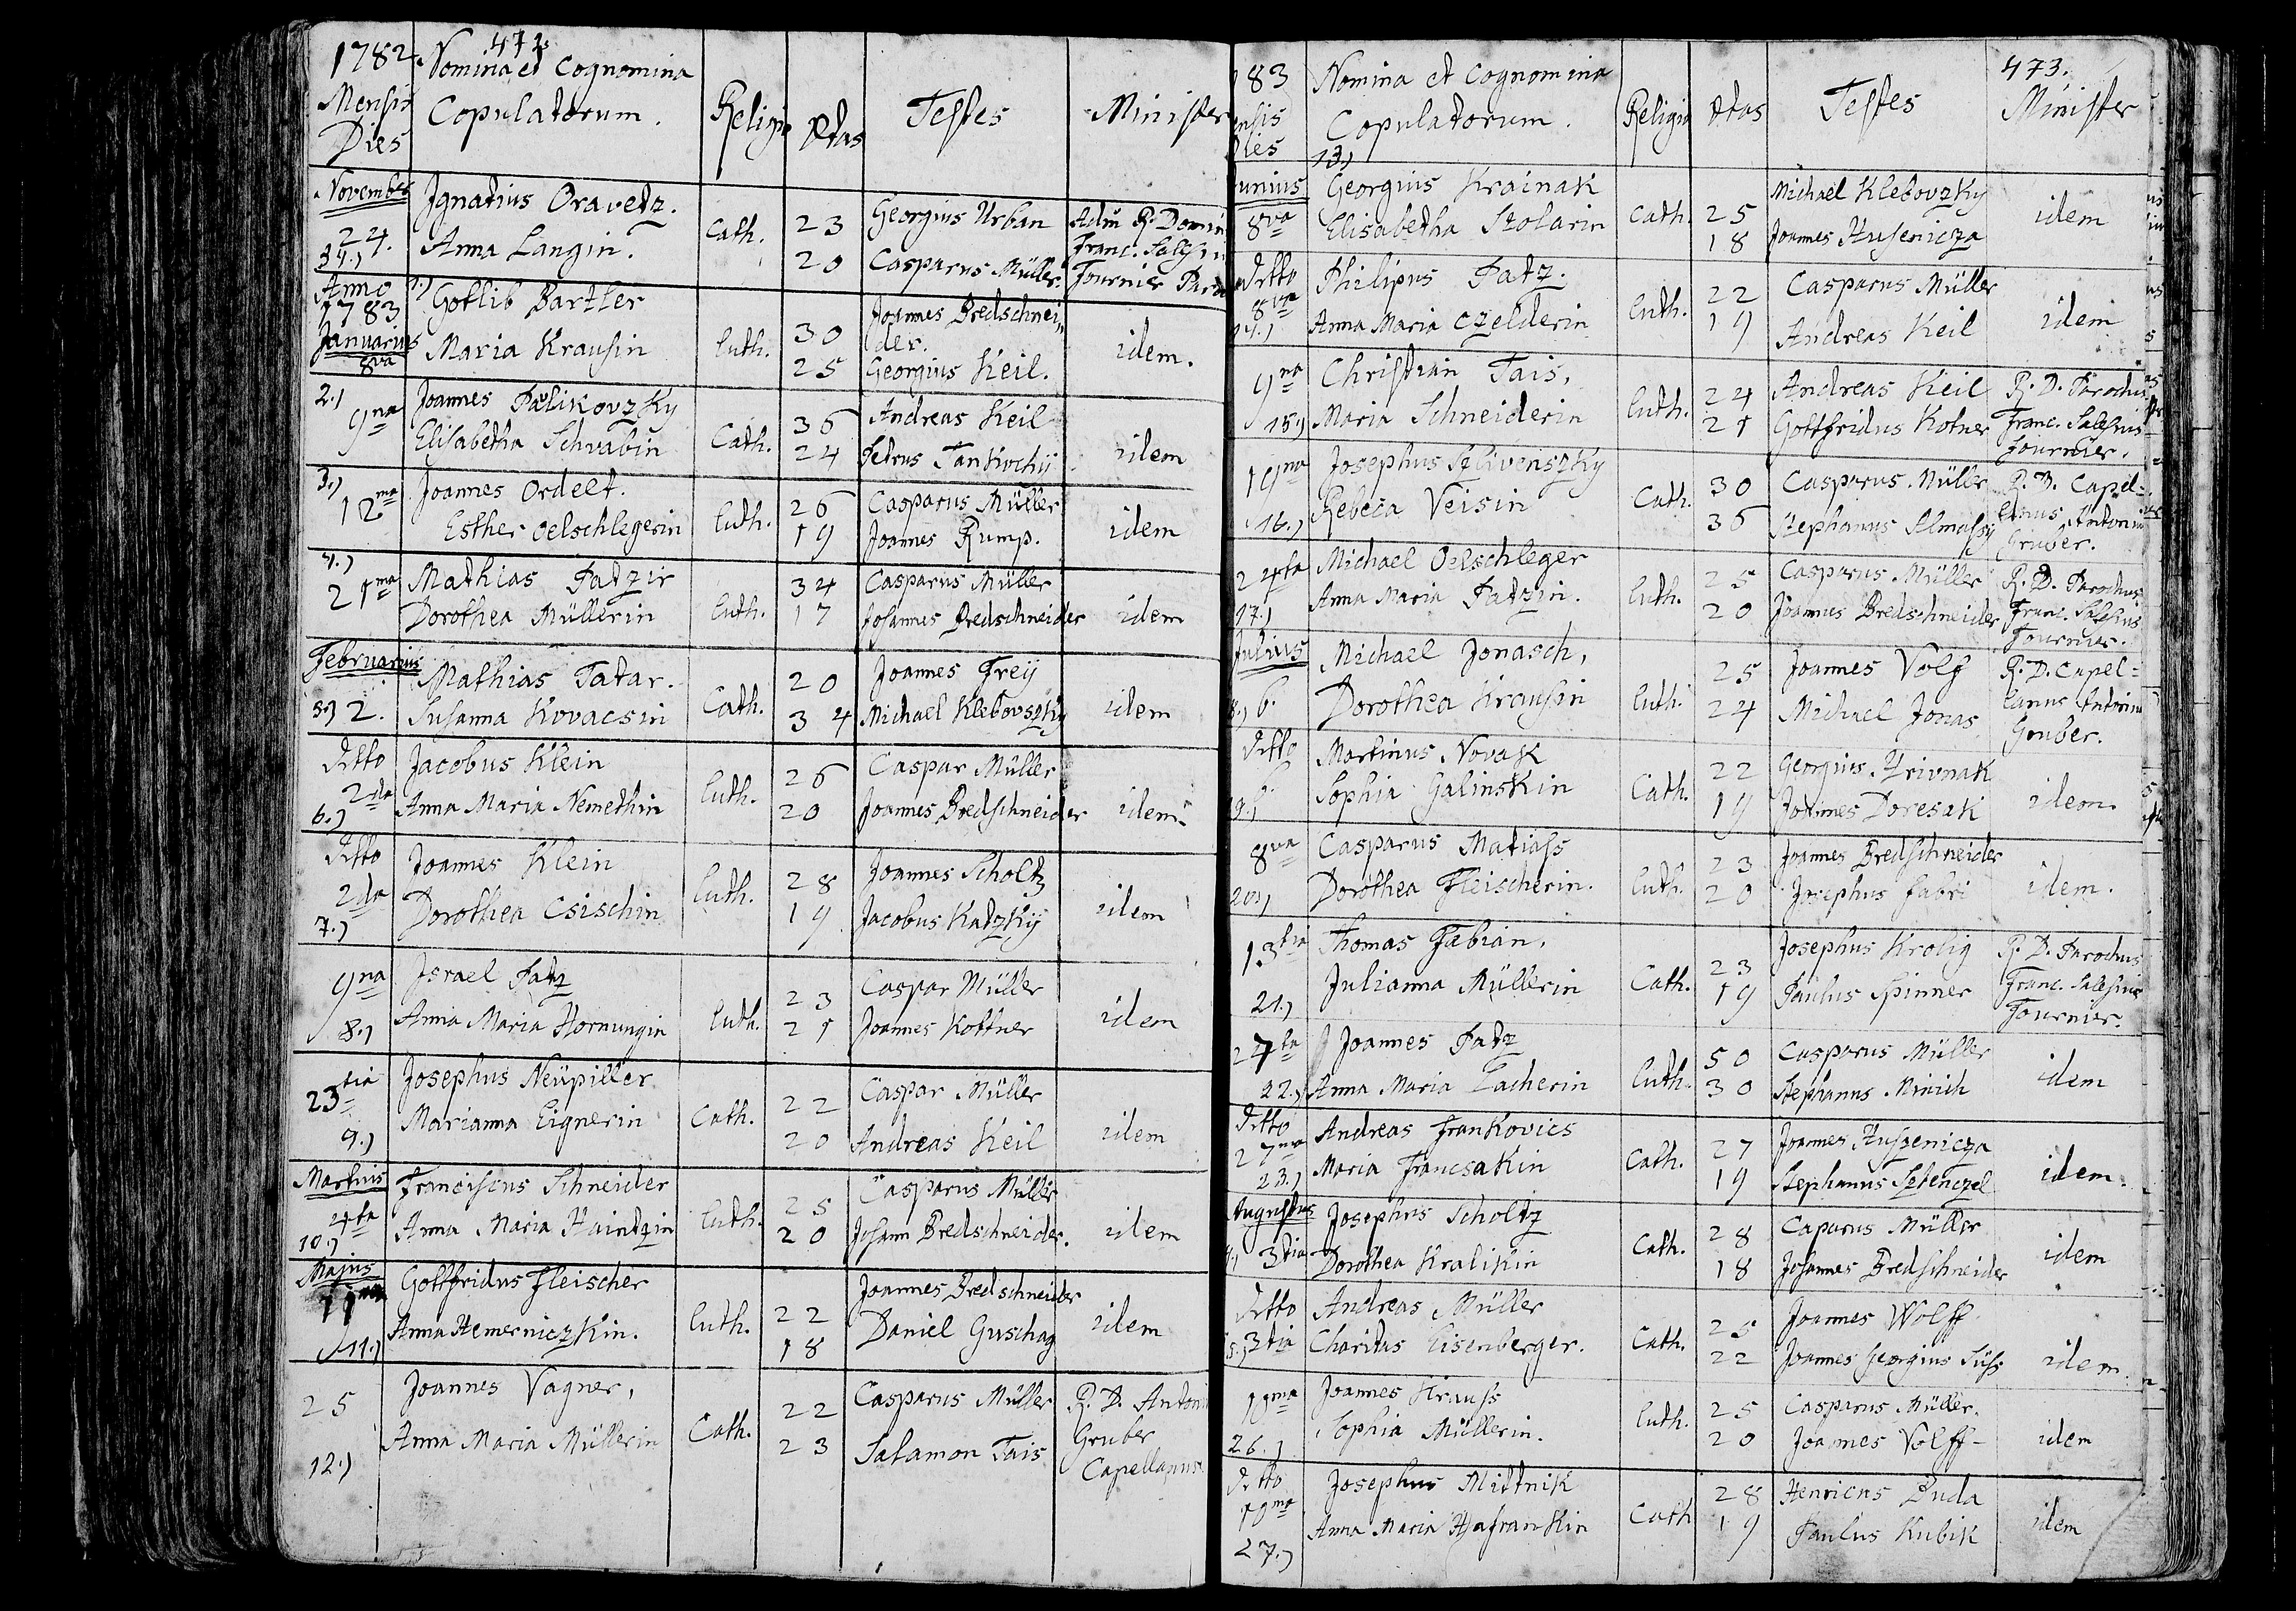 472.
1782. Nomina et Cognomina
Mensis Copulatorum. Religio Ætas Testes Minister
Dies
November Ignatius Oravetz. Cath. 23 Georgius Urban Adm R. Domin
24. Anna Langin. 20 Casparus Müller. Franc. Salesiu
34.) Fournier Paro
Anno 1.) Gotlib Bartler 30 Joannes Bredschnei
1783 Luth. der. idem.
Januarius Maria Krausin 25 Georgius Keil.
8va
2.) Joannes Palikovzky 36 Andreas Keil
9na Elisabetha Schvabin Cath. 24 Petrus Jankochÿ idem
3.) Joannes Ordelt. 26 Casparus Müller
12ma Esther Oelschlegerin Luth. 19 Joannes Rump. idem
4.) Mathias Patzir 34 Casparus Müller
21ma Dorothea Müllerin Luth. 17 Johannes Bredschneider idem
Februarius Mathias Tatar. 20 Joannes Freÿ
5.) 2. Susanna Kovacsin Cath. 34 Michael Klebovszky idem
Ditto Jacobus Klein 26 Caspar Müller
2da Luth.
6.) Anna Maria Nemethin 20 Joannes Bredschneider idem
Ditto Joannes Klein 28 Joannes Scholtz
2da Dorothea Csischin Luth. 19 Jacobus Katzkÿ idem
7.)
9na Israel Patz 23 Caspar Müller
8.) Anna Maria Hornungin Luth. 21 Joannes Kottner idem
23tia Josephus Neüpiller 22 Caspar Müller
9.) Marianna Eignerin Cath. 20 Andreas Keil idem
Martius Franciscus Schneider 25 Casparus Müller
4ta Luth.
10.) Anna Maria Haintzin 20 Johann Bredschneider. idem
Majus Gottfridus Fleischer 22 Joannes Bredschneider
Luth. Daniel Guschag idem
11.) Anna Hemerniczkin. 18
25 Joannes Vagner, 22 Casparus Müller R. D. Anton
Anna Maria Müllerin Cath. 23 Salamon Tais Gruber
12.) Capellanus
473.
83 Nomina et Cognomina
ensis Copulatorum. Religio Ætas Testes Minister
Dies
13.)
unius Georgius Krainak 25 Michael Klebovzky
8va Elisabetha Stolarin Cath. 18 Joannes Husenicza idem
Ditto Philipus Patz. 22 Casparus Müller
8va Luth.
14.) Anna Maria Czelderin 19 Andreas Keil idem
9na Christian Tais, 24 Andreas Keil R. D. Parochus
15.) Maria Schneiderin Luth. 21 Gottfridus Kotner Franc. Salesius
Fournier.
19na Josephus Szlivenszky 30 Casparus Müller R. D. Capel=
16.) Rebeca Veisin Cath. 36 Stephanus Almasy lanus Antoniu
Gruber.
24ta Michael Oelschleger 25 Casparus Müller R. D. Parochus
17.) Anna Maria Patzin. Luth. 20 Joannes Bredschneider Franc. Salesius
Fournier.
Julius Michael Jonasch, 25 Joannes Volf R. D. Capel=
8.) 6. Dorothea Krausin Luth. 24 Michael Jonas lanus Antoniu
Gruber.
Ditto Martinus Novak 22 Georgius Hrivnak
6. Sophia Galinskin Cath. 19 Joannes Doresak idem.
19.)
8va Casparus Matiass 23 Joannes Bredschneider
20.) Dorothea Fleischerin. Luth. 20 Josephus Fabri idem.
13tia Thomas Fabian, 23 Josephus Krolig R. D. Parochus
21.) Julianna Müllerin Cath. 19 Paulus Spinner Franc. Salesius
Fournier.
27ta Joannes Patz 50 Casparus Müller
22.) Anna Maria Lacherin Luth. 30 Stephanus Minich idem
Ditto Andreas Frankovics 27 Joannes Huszenicza
27ma Maria Francsakin Cath. 19 Stephanus Sztenczel idem.
23.)
Augustus Josephus Scholtz 28 Caparus Müller
3tia Dorothea Kralikin Cath. 18 Johannes Bredschneider idem
Ditto Andreas Müller 25 Joannes Wolff
5.) 3tia Charitas Eisenberger. Cath. 22 Joannes Georgius Süss idem.
10ma Joannes Krauss 25 Casparus Müller.
26.) Sophia Müllerin. Luth. 20 Joannes Volff- idem
Ditto Josephus Mittnik 28 Henricus Buda
10ma Anna Maria Hafrankin Cath 19 Paulus Kubik idem
27.)